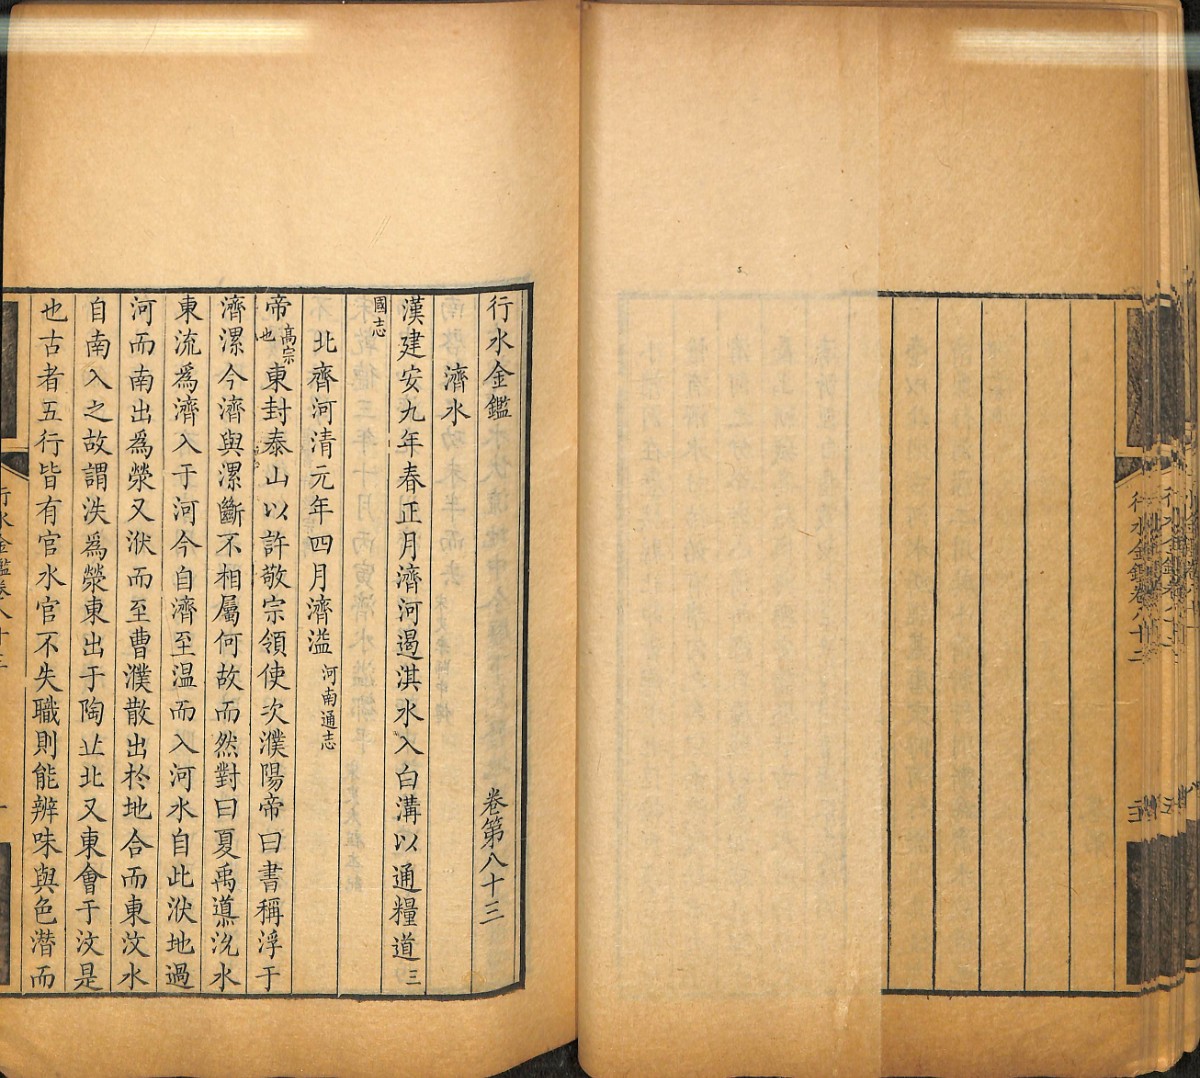 行水金鑑卷八十二
行水金鑑 卷第八十三
濟水
漢建安九年春正月濟河遏淇水入白溝以通糧道三
國志
北齊河清元年四月濟溢河南通志
帝高宗也東封泰山以許敬宗領使次濮陽帝曰書稱浮于
濟漯今濟與漯斷不相屬何故而然對曰夏禹導沇水
東流爲濟入于河今自濟至温而入河水自此洑地過
河而南出爲滎又洑而至曹濮散出於地合而東汶水
自南入之故謂泆爲滎東出于陶丠北又東會于汶是
也古者五行皆有官水官不失職則能辨味與色潛而
行水金鑑卷八十三
一